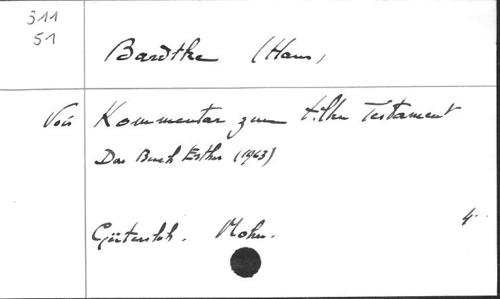 311
51
Bardtke (Hans)
Voir Kommentar zum A.lten Testament
Das Buch Esther (1963)
Gütersloh. Mohn. 4°